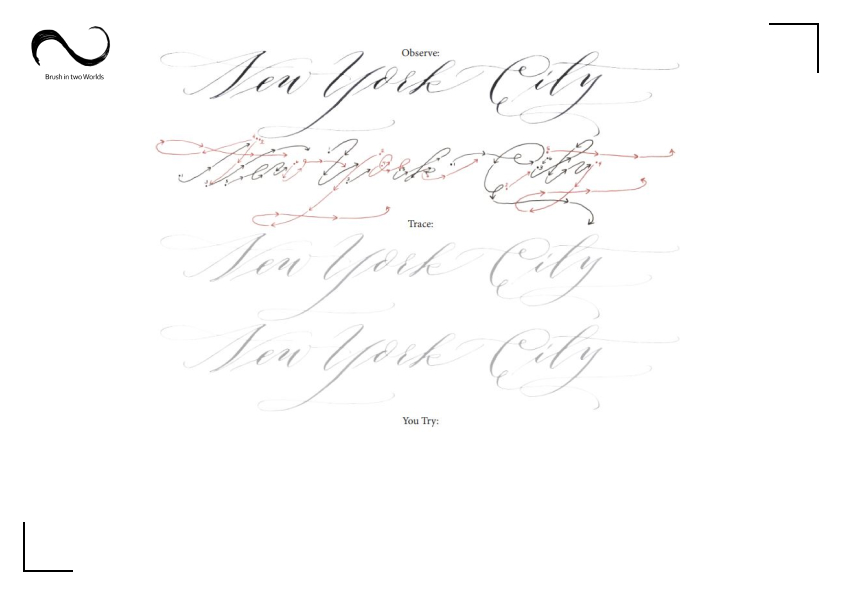 Brush in two Worlds
Observe:
New York City
New York City
Trace:
New York City
New York City
You Try: